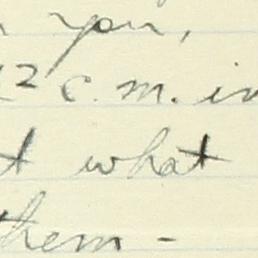 you,
2 c.m. in
t what
them -